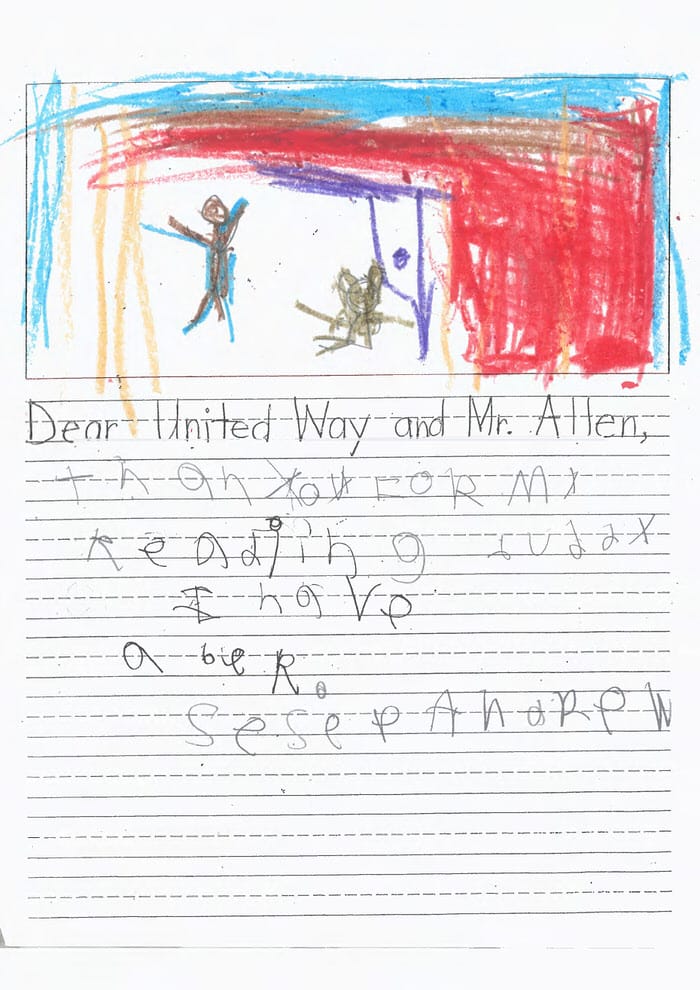 Dear United Way and Mr. Allen,
than You FOR MY
Reading buddy
I have
a beR.
SeSep AndRew